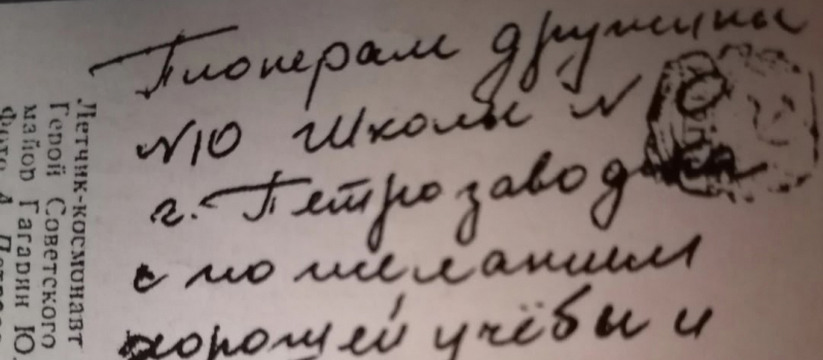 Пионерам дружины
№10 Школы №10
г. Петрозаводска
с пожеланием
хорошей учёбы и
Летчик-космонавт
Герой Советского
майор Гагарин Ю.
Фото А.